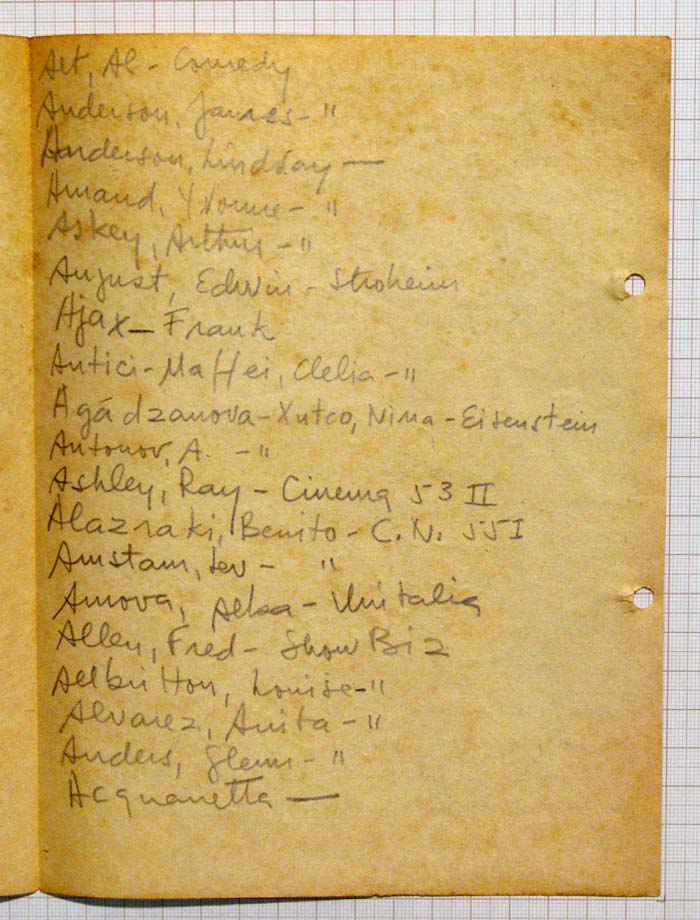 Alt, Al - Comedy
Anderson, James - "
Anderson, Lindsay —
Amand, Yvonne - "
Askey, Arthur - "
August, Edwin - Stroheim
Ajax - Frank
Antici-Maffei, Clelia - "
Agádzanova-Xutco, Nina - Eisenstein
Antonov, A. - "
Ashley, Ray - Cinema 53 II
Alazraki, Benito - C.N. 55 I
Amstam, Lev - "
Amova, Alba - Unitalia
Allen, Fred - Show Biz
Allbritton, Louise - "
Alvarez, Anita - "
Anders, Glenn - "
Acquanetta —